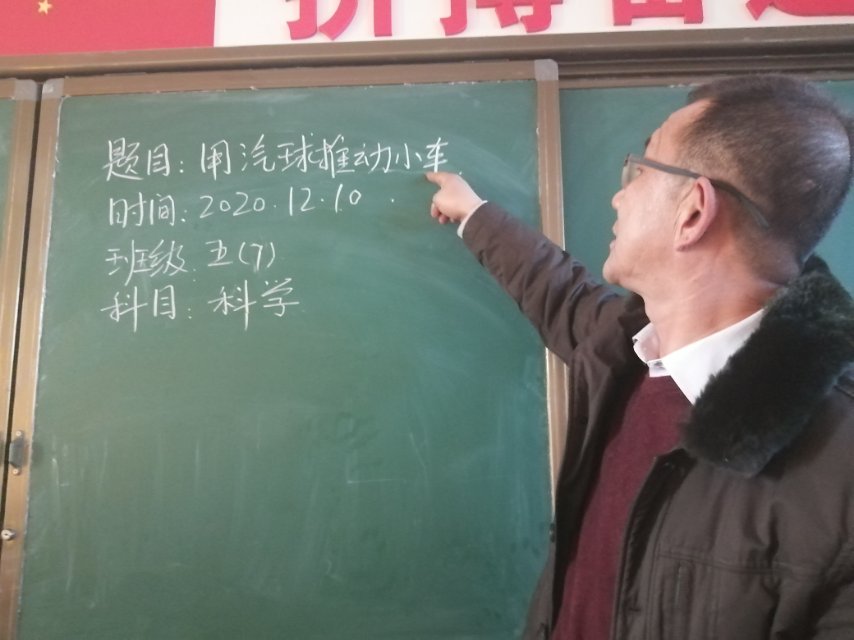 拼搏奋
题目：用汽球推动小车
时间：2020.12.10.
班级：五(7)
科目：科学